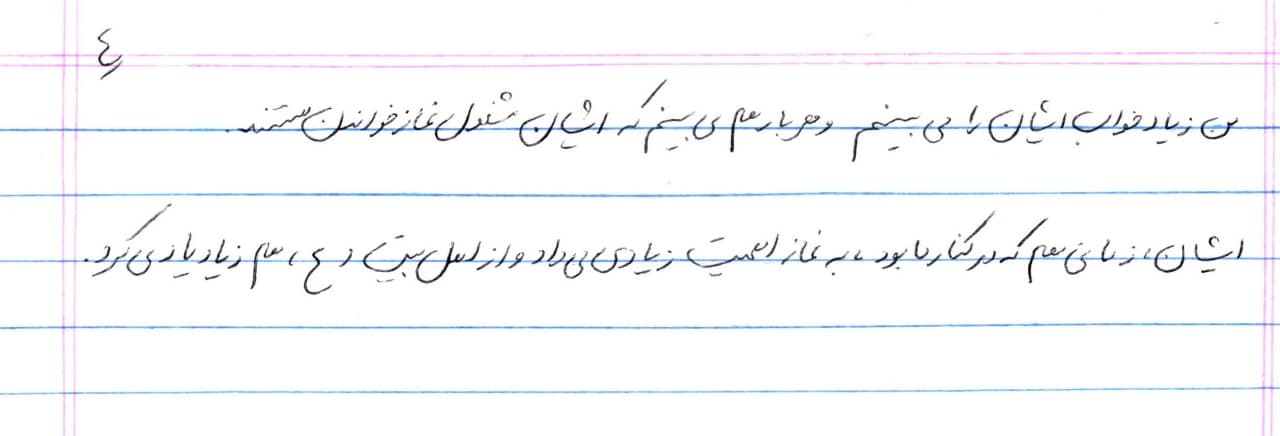 ٤
من زیاد خواب ایشان را می بینم و هر بار هم می بینم که ایشان مشغول نماز خواندن هستند.
ایشان، زمانی هم که در کنار ما بود، به نماز اهمیت زیادی می داد و از اهل بیت (ع) هم زیاد یاد می کرد.